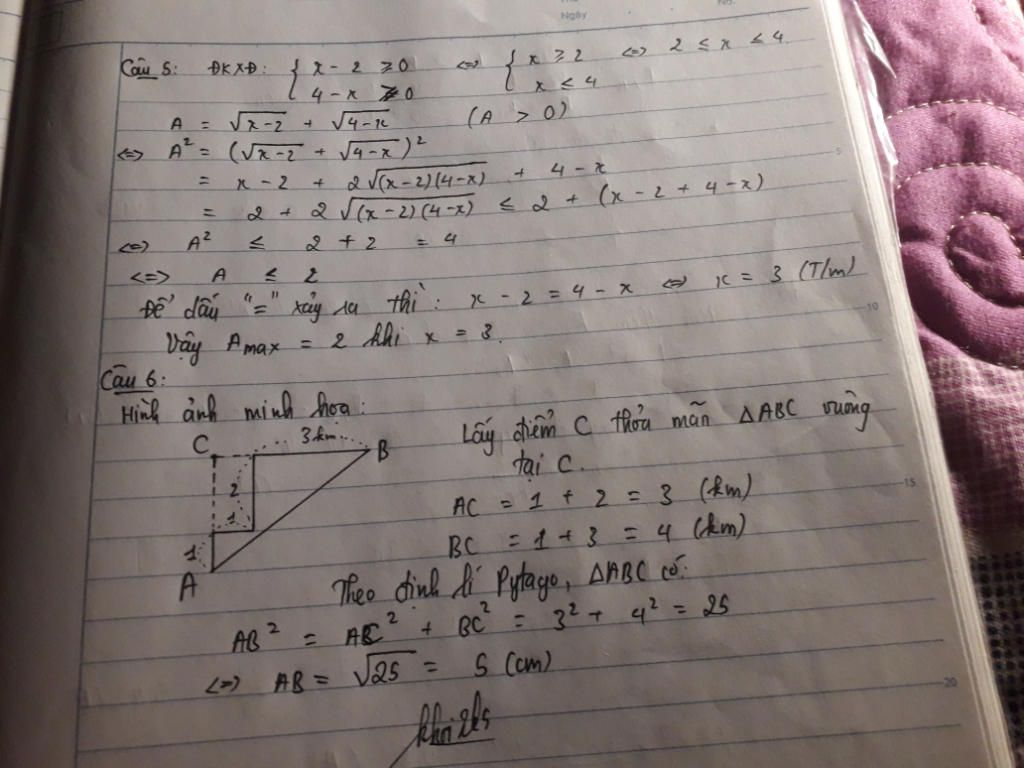 Ngày
No.
Câu 5: ĐKXĐ: { x - 2 ≥ 0 <=> { x ≥ 2 <=> 2 ≤ x ≤ 4
4 - x ≥ 0 x ≤ 4
A = √(x-2) + √(4-x) (A > 0)
<=> A² = (√(x-2) + √(4-x))²
= x - 2 + 2√((x-2)(4-x)) + 4 - x
= 2 + 2√((x-2)(4-x)) ≤ 2 + (x - 2 + 4 - x)
<=> A² ≤ 2 + 2 = 4
<=> A ≤ 2
Để dấu "=" xảy ra thì: x - 2 = 4 - x <=> x = 3 (T/m)
Vậy Amax = 2 khi x = 3.
Câu 6:
Hình ảnh minh họa:
C 3km B
2
1
1
A
Lấy điểm C thỏa mãn ΔABC vuông
tại C.
AC = 1 + 2 = 3 (km)
BC = 1 + 3 = 4 (km)
Theo định lí Pytago, ΔABC có:
AB² = AC² + BC² = 3² + 4² = 25
<=> AB = √25 = 5 (cm)
5
10
15
20